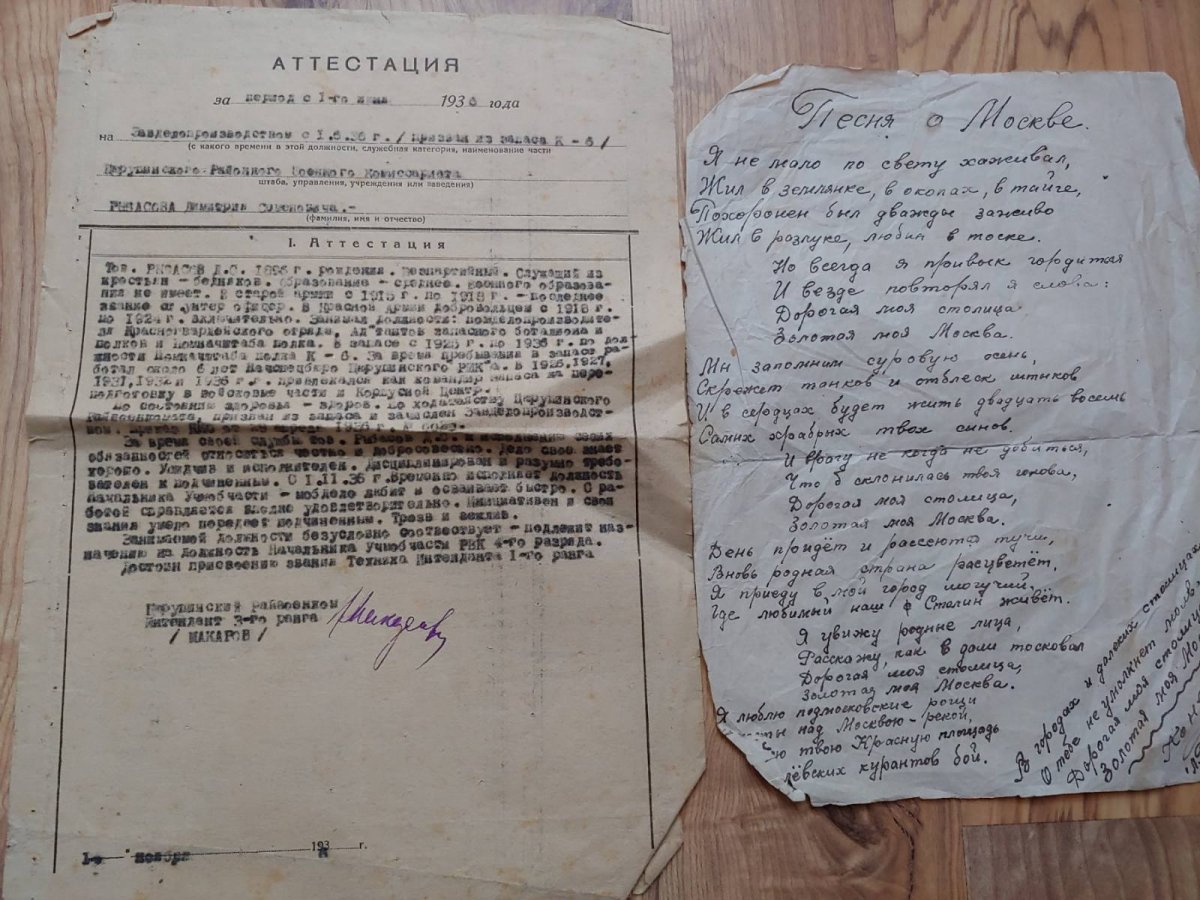 АТТЕСТАЦИЯ
за период с 1-го 1936 года
на Завделопроизводством с 1.6.36 г. / Призван из запаса К - 6 /
(с какого времени в этой должности, служебная категория, наименование части
Церушинского Районного Военного Комиссариата
штаба, управления, учреждения или заведения)
РЫБАСОВА Димитрия .-
(фамилия, имя и отчество)
I. Аттестация
Тов. РЫБАСОВ Д.С. г. рождения. Беспартийный. Служащий из
крестьян - бедняков. Образование - среднее. Военного образова-
ния не имеет. В старой армии с 1915 г. по 1918 г. - последнее
звание ст. унтер офицер. В Красной Армии добровольцем с 1918 г.
по 1924 г. включительно. Занимал должности:
ля Красногвардейского отряда, запасного баталиона и
полков и Помначштаба полка. В запасе с 1925 г. по 1936 г. по дол-
жности Помначштаба полка К - 6. За время пребывания в запасе ра-
ботал около 6 лет Начспецбюро Церушинского РВК"а. В 1925, 1927,
1931, 1932 и 1936 г.г. привлекался как командир запаса на пере-
подготовку в войсковые части и Корпусной Центр.
По состоянию здоровья - здоров. По ходатайству Церушинского
Райвоенкомата, призван из запаса и зачислен Завделопроизводст-
вом. Приказ апреля 1936 г. №
За время своей службы тов. Рыбасов Д.С. к исполнению своих
обязанностей относиться честно и добросовестно. Дело свое знает
хорошо. Усидчив и исполнителен. Дисциплинирован и разумно требо-
вателен к подчиненным. С 1.11.36 г. временно исполняет должность
начальника Учмобчасти - мобдело любит и осваивает быстро. С ра-
ботой справляется вполне удовлетворительно. Инициативен и свои
знания умело передает подчиненным. Трезв и вежлив.
Занимаемой должности безусловно соотвествует - подлежит наз-
начению на должность Начальника Учмобчасти РВК 4-го разряда.
Достоин присвоению звания Техника Интенданта 1-го ранга
Церушинский райвоенком
Интендант 3-го ранга
/ МАКАРОВ /
1-го " ноября 1936 г.
Песня о Москве.
Я не мало по свету хаживал,
Жил в землянке, в окопах, в тайге,
Похоронен был дважды заживо
Жил в разлуке, любил в тоске.
Но всегда я привык гордится
И везде повторял я слова:
Дорогая моя столица
Золотая моя Москва.
Мы запомним суровую осень,
Скрежет танков и отблеск штыков
И в сердцах будет жить двадцать восемь
Самых храбрых твоих сынов.
И врагу не когда не добиться,
Что б склонилась твоя голова,
Дорогая моя столица,
Золотая моя Москва.
День придёт и рассеются тучи,
Вновь родная страна расцветёт,
Я приеду в мой город могучий,
Где любимый наш Сталин живёт.
Я увижу родные лица,
Расскажу, как в дали тосковал
Дорогая моя столица,
Золотая моя Москва.
Я люблю подмосковские рощи
ты над Москвою-рекой,
ю твою Красную площадь
лёвских курантов бой.
В городах и далеких столицах
О тебе не умолкнет молв
Дорогая моя столиц
Золотая моя Мо